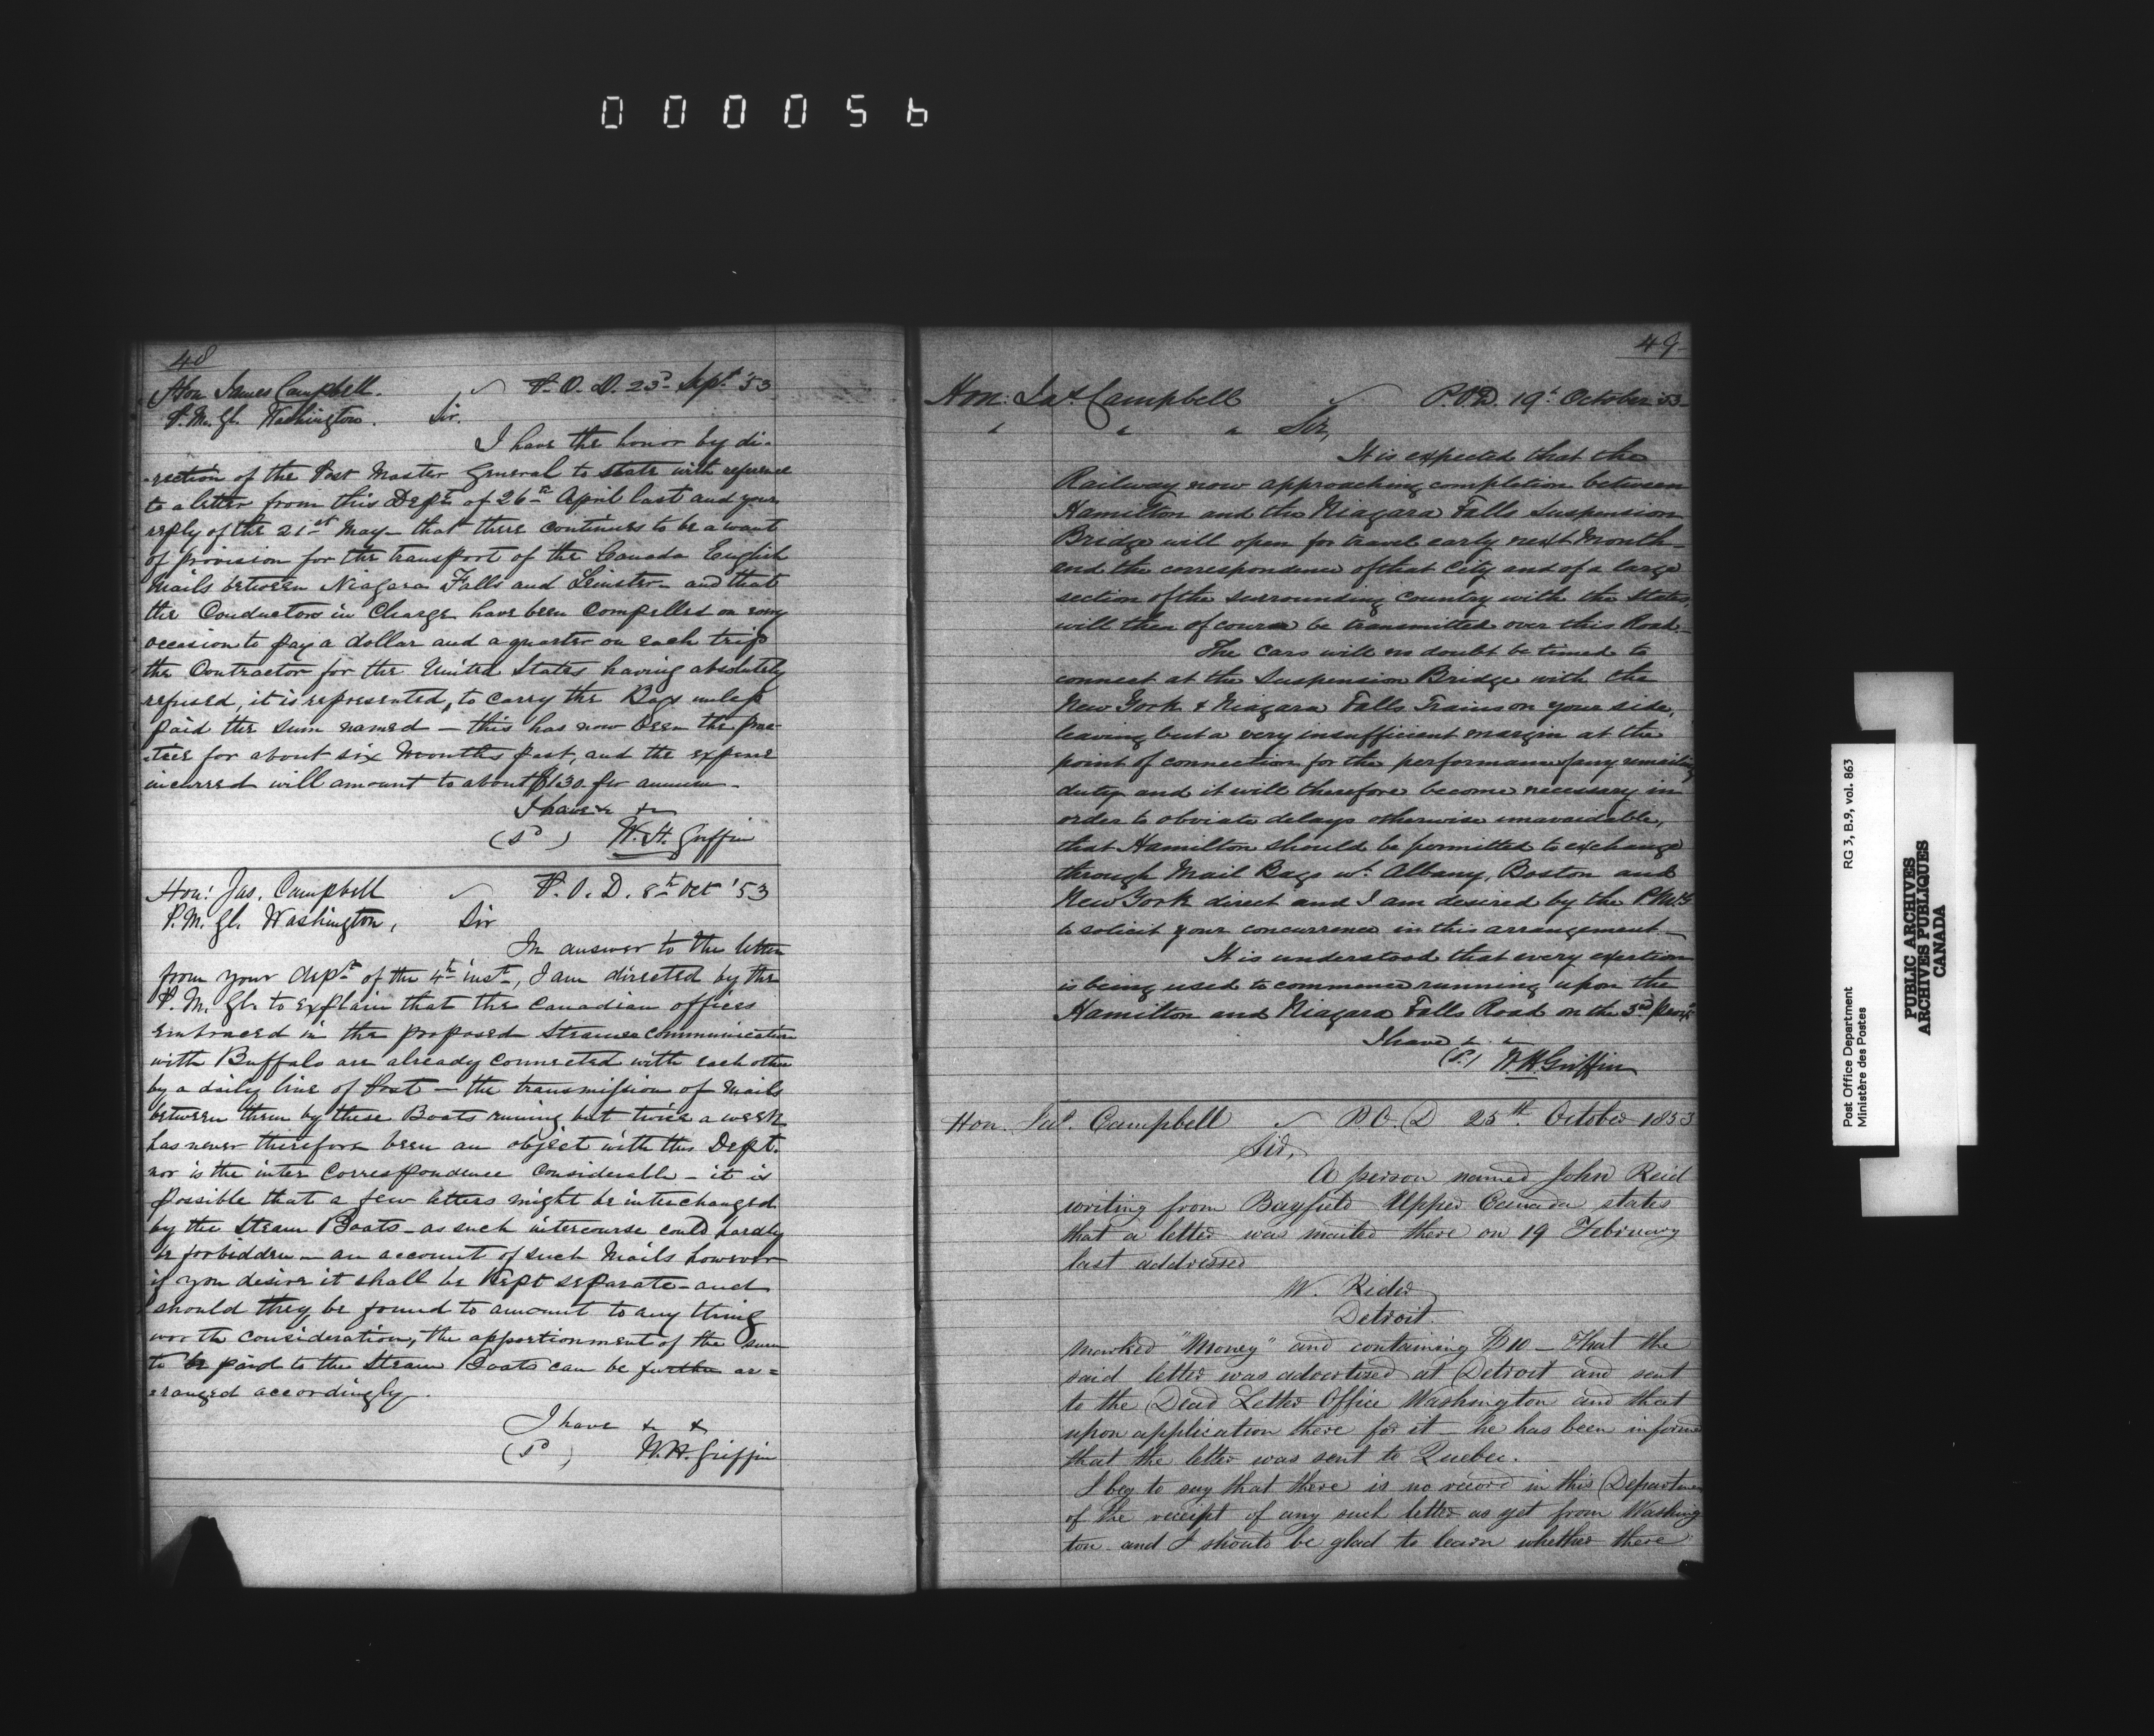 000056
48
Hon James Campbell. P. O. D. 23d Sept '53
P. M. Gl. Washington. Sir.
I have the honor by di-
-rection of the Post Master General to state with reference
to a letter from this Dept of 26th April last and your
reply of the 21st May - that there continues to be a want
of provision for the transport of the Canada English
Mails between Niagara Falls and Leinster - and that
the Conductors in Charge have been Compelled on every
occasion to pay a dollar and a quarter on each trip
the Contractor for the United States having absolutely
refused, it is represented, to carry the Bags unless
paid the sum named - this has now been the prac-
-tice for about six Months past, and the expense
incurred will amount to about $130. per annum -
I have &c &c
(sd) W. H. Griffin
Hon: Jas. Campbell P. O. D. 8th Oct '53
P. M. Gl. Washington, Sir
In answer to the letter
from your dept of the 4th inst, I am directed by the
P. M. Gl. to explain that the Canadian offices
embraced in the proposed Steamer Communication
with Buffalo are already connected with each other
by a daily line of Post - the transmission of Mails
between them by these Boats runing but twice a week
has never therefore been an object with this Dept.
nor is the inter Correspondence Considerable - it is
possible that a few letters might be interchanged
by the Steam Boats - as such intercourse could hardly
be forbidden - an account of such Mails however
if you desire it shall be Kept separate - and
should they be found to amount to any thing
worth consideration, the apportionment of the sum
to be paid to the Steam Boats can be further ar=
=ranged accordingly.
I have &c &c
(sd) W. H. Griffin
49
Hon: Jas Campbell P.O.D. 19th October 53-
" " " Sir,
It is expected that the
Railway now approaching completion between
Hamilton and the Niagara Falls Suspension
Bridge will open for travel early next Month -
and the correspondence of that City and of a large
section of the surrounding Country with the States,
will then of course be transmitted over this Road -
The Cars will no doubt be timed to
connect at the Suspension Bridge with the
New York & Niagara Falls Trains on your side,
leaving but a very insufficient margin at the
point of connection for the performance of any remailing
duty and it will therefore become necessary in
order to obviate delays otherwise unavoidable,
that Hamilton should be permitted to exchange
through Mail Bags wt. Albany, Boston and
New York direct and I am desired by the P.M.G
to solicit your concurrence in this arrangement -
It is understood that every exertion
is being used to commence running upon the
Hamilton and Niagara Falls Road on the 3rd prox
I have &c
(sd) W. H. Griffin
Hon. Jas. Campbell P.O.D 25th October 1853
Sir,
A person named John Reid
writing from Bayfield Upper Canada states
that a letter was mailed there on 19 February
last addressed
W. Rider
Detroit
marked "Money" and containing $10 - That the
said letter was advertised at Detroit and sent
to the Dead Letter Office Washington and that
upon application there for it - he has been informed
that the letter was sent to Quebec.
I beg to say that there is no record in this Departmen
of the receipt of any such letter as yet from Washing
ton - and I should be glad to learn whether there
Post Office Department RG 3, B.9, vol. 863
Ministère des Postes
PUBLIC ARCHIVES
ARCHIVES PUBLIQUES
CANADA